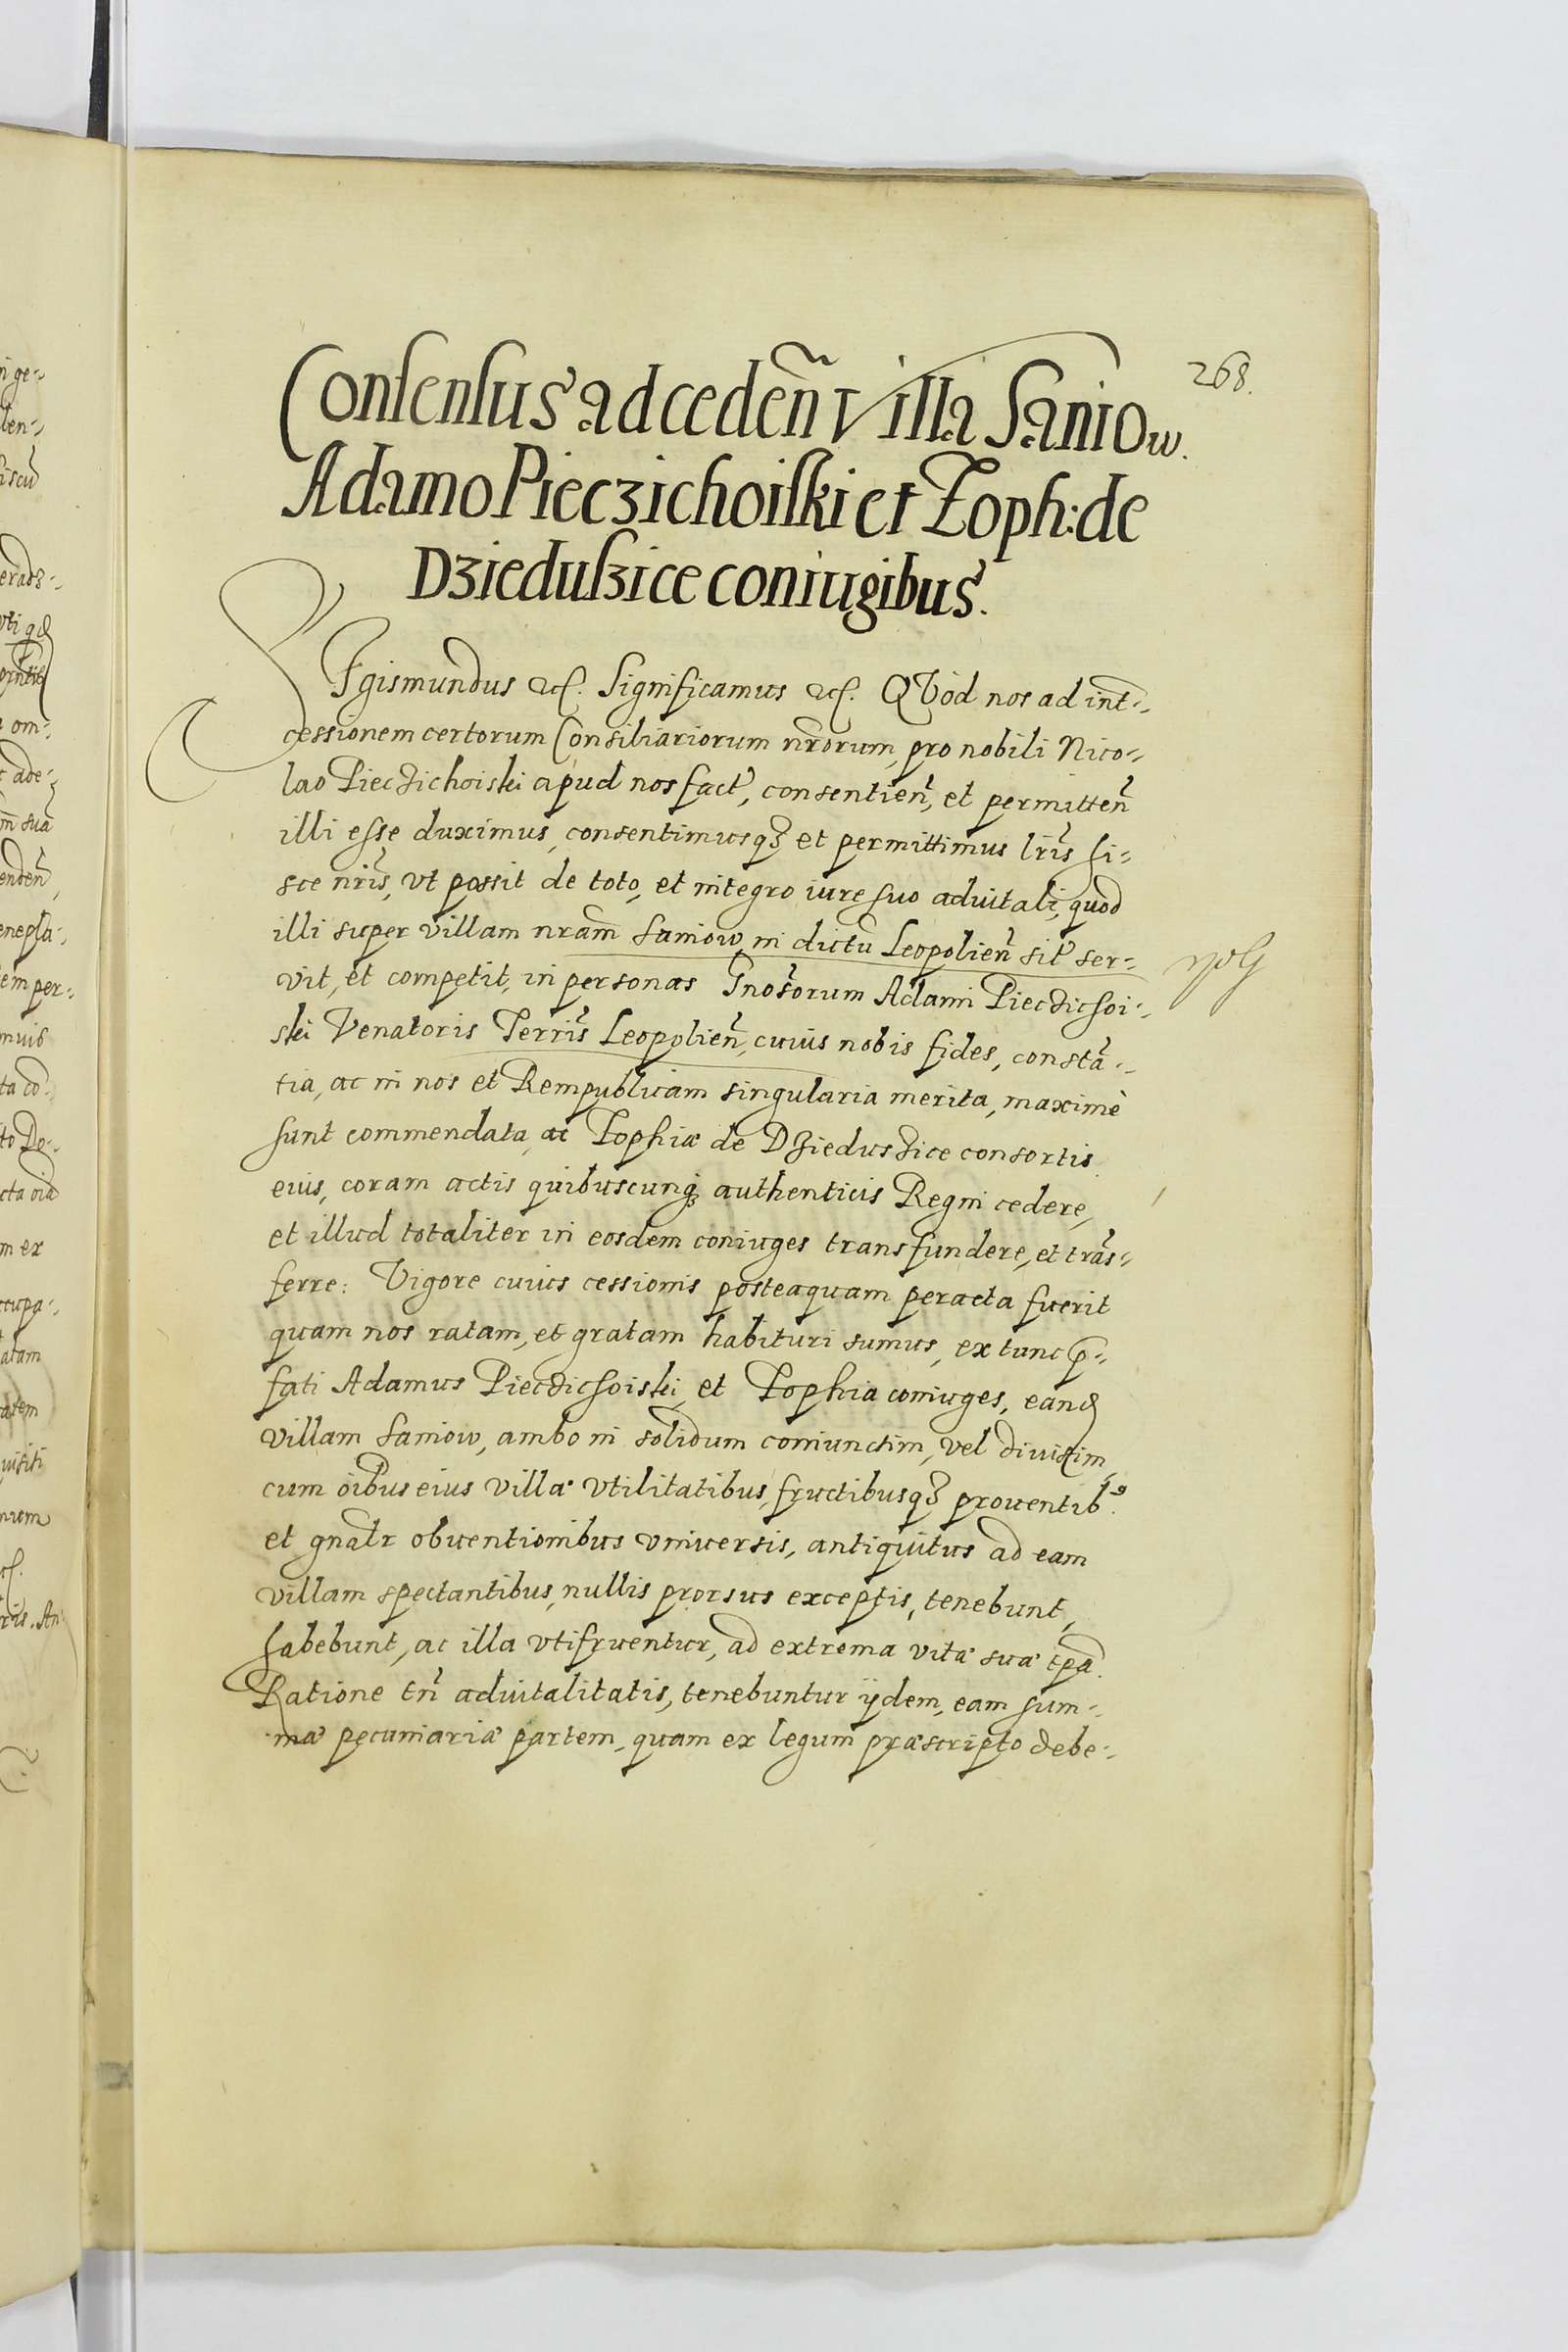 268.
Consensus ad cedeñ Villa Saniow.
Adamo Pieczichoiski et Zoph: de
Dzieduszice coniugibus.
SIgismundus etc. Significamus etc. QVod nos ad int̃-
cessionem certorum Consiliariorum nr̃orum, pro nobili Nico-
lao Pieczichoiski apud nos fact̃, consentieñ, et permitteñ
illi esse duximus, consentimusqꝫ et permittimus lr̃is hi-
sce nr̃is, vt possit de toto, et integro iure suo aduitali, quod
illi super villam nr̃am Saniow in dictũ Leopolieñ sit̃ ser-
vit, et competit, in personas Gnosorum Adami Pieczichoi-
ski Venatoris Terris̃ Leopolieñ, cuius nobis fides, constã-
tia, ac in nos et Rempublicam singularia merita, maximè
sunt commendata, ac Zophiæ de Dzieduszice consortis
eius, coram actis quibuscunqꝫ authenticis Regni cedere,
et illud totaliter in eosdem coniuges transfundere, et trãs-
ferre: Vigore cuius cessionis posteaquam peracta fuerit
quam nos ratam, et gratam habituri sumus, ex tunc p̃-
fati Adamus Pieczichoiski, et Zophia coniuges, eand
villam Saniow, ambo in solidum coniunctim, vel diuisim,
cum oĩbus eius villæ vtilitatibus, fructibusqꝫ prouentib9.
et gñalr obuentionibus vniuersis, antiquitus ad eam
villam spectantibus, nullis prorsus exceptis, tenebunt,
habebunt, ac illa vtifruentur, ad extrema vitæ suæ tp̃a.
Ratione tñ aduitalitatis, tenebuntur ijdem, eam sum-
mæ pecuniariæ partem, quam ex legum præscripto debe-